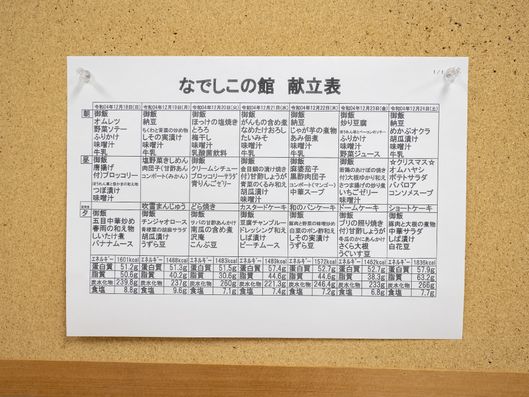 1/1
なでしこの館 献立表
令和04年12月18日(日) 令和04年12月19日(月) 令和04年12月20日(火) 令和04年12月21日(水) 令和04年12月22日(木) 令和04年12月23日(金) 令和04年12月24日(土)
朝 御飯 御飯 御飯 御飯 御飯 御飯 御飯
オムレツ 納豆 ほっけの塩焼き がんもの含め煮 納豆 炒り豆腐 納豆
野菜ソテー ちくわと青菜の炒め物 とろろ なめたけおろし じゃが芋の煮物 めかぶオクラ
ふりかけ しその実漬け 梅干し たいみそ あみ佃煮 ふりかけ 胡瓜漬け
味噌汁 味噌汁 味噌汁 味噌汁 味噌汁 味噌汁 味噌汁
牛乳 牛乳 乳酸菌飲料 牛乳 牛乳 野菜ジュース 牛乳
昼 御飯 塩野菜きしめん 御飯 御飯 御飯 御飯 ☆クリスマス☆
唐揚げ 肉団子(甘酢あん) クリームシチュー 金目鯛の漬け焼き 麻婆茄子 オムハヤシ
付)ブロッコリー コンポート(みかん) ブロッコリーサラダ 付)甘酢しょうが 黒酢肉団子 付)大根ゆかり和え ポテトサラダ
青りんごゼリー 青菜のくるみ和え コンポート(マンゴー) さつま揚げの炒り煮 ババロア
つぼ漬け 胡瓜漬け 中華スープ いちごゼリー コンソメスープ
味噌汁 味噌汁 味噌汁
吹雪まんじゅう どら焼き カスタードケーキ 和のパンケーキ ドームケーキ ショートケーキ
夕 御飯 御飯 御飯 御飯 御飯 御飯 御飯
五目中華炒め チンジャオロース サバの甘酢あんかけ 豆腐チャンプルー 豚肉と野菜の味噌炒め ブリの照り焼き 豚肉と大根の煮物
春雨の和え物 青梗菜の胡麻サラダ 南瓜の含め煮 ドレッシング和え 白菜のポン酢和え 付)甘酢しょうが 中華サラダ
しいたけ煮 胡瓜漬け 沢庵 しば漬け しその実漬け しば漬け
バナナムース うずら豆 こんぶ豆 ピーチムース うずら豆 さくら大根 白花豆
うぐいす豆
エネルギー 1601kcal エネルギー 1488kcal エネルギー 1483kcal エネルギー 1499kcal エネルギー 1572kcal エネルギー 1462kcal エネルギー 1836kcal
蛋白質 51.2g 蛋白質 51.3g 蛋白質 51.4g 蛋白質 57.4g 蛋白質 52.7g 蛋白質 52.7g 蛋白質 57.9g
脂質 50.6g 脂質 40.2g 脂質 30.6g 脂質 44.7g 脂質 38.3g 脂質 63.2g
炭水化物 239.8g 炭水化物 237g 炭水化物 250g 炭水化物 221.3g 炭水化物 246.4g 炭水化物 233g 炭水化物 256g
食塩 8.8g 食塩 9.6g 食塩 7.1g 食塩 7.4g 食塩 7.2g 食塩 6.8g 食塩 7.7g